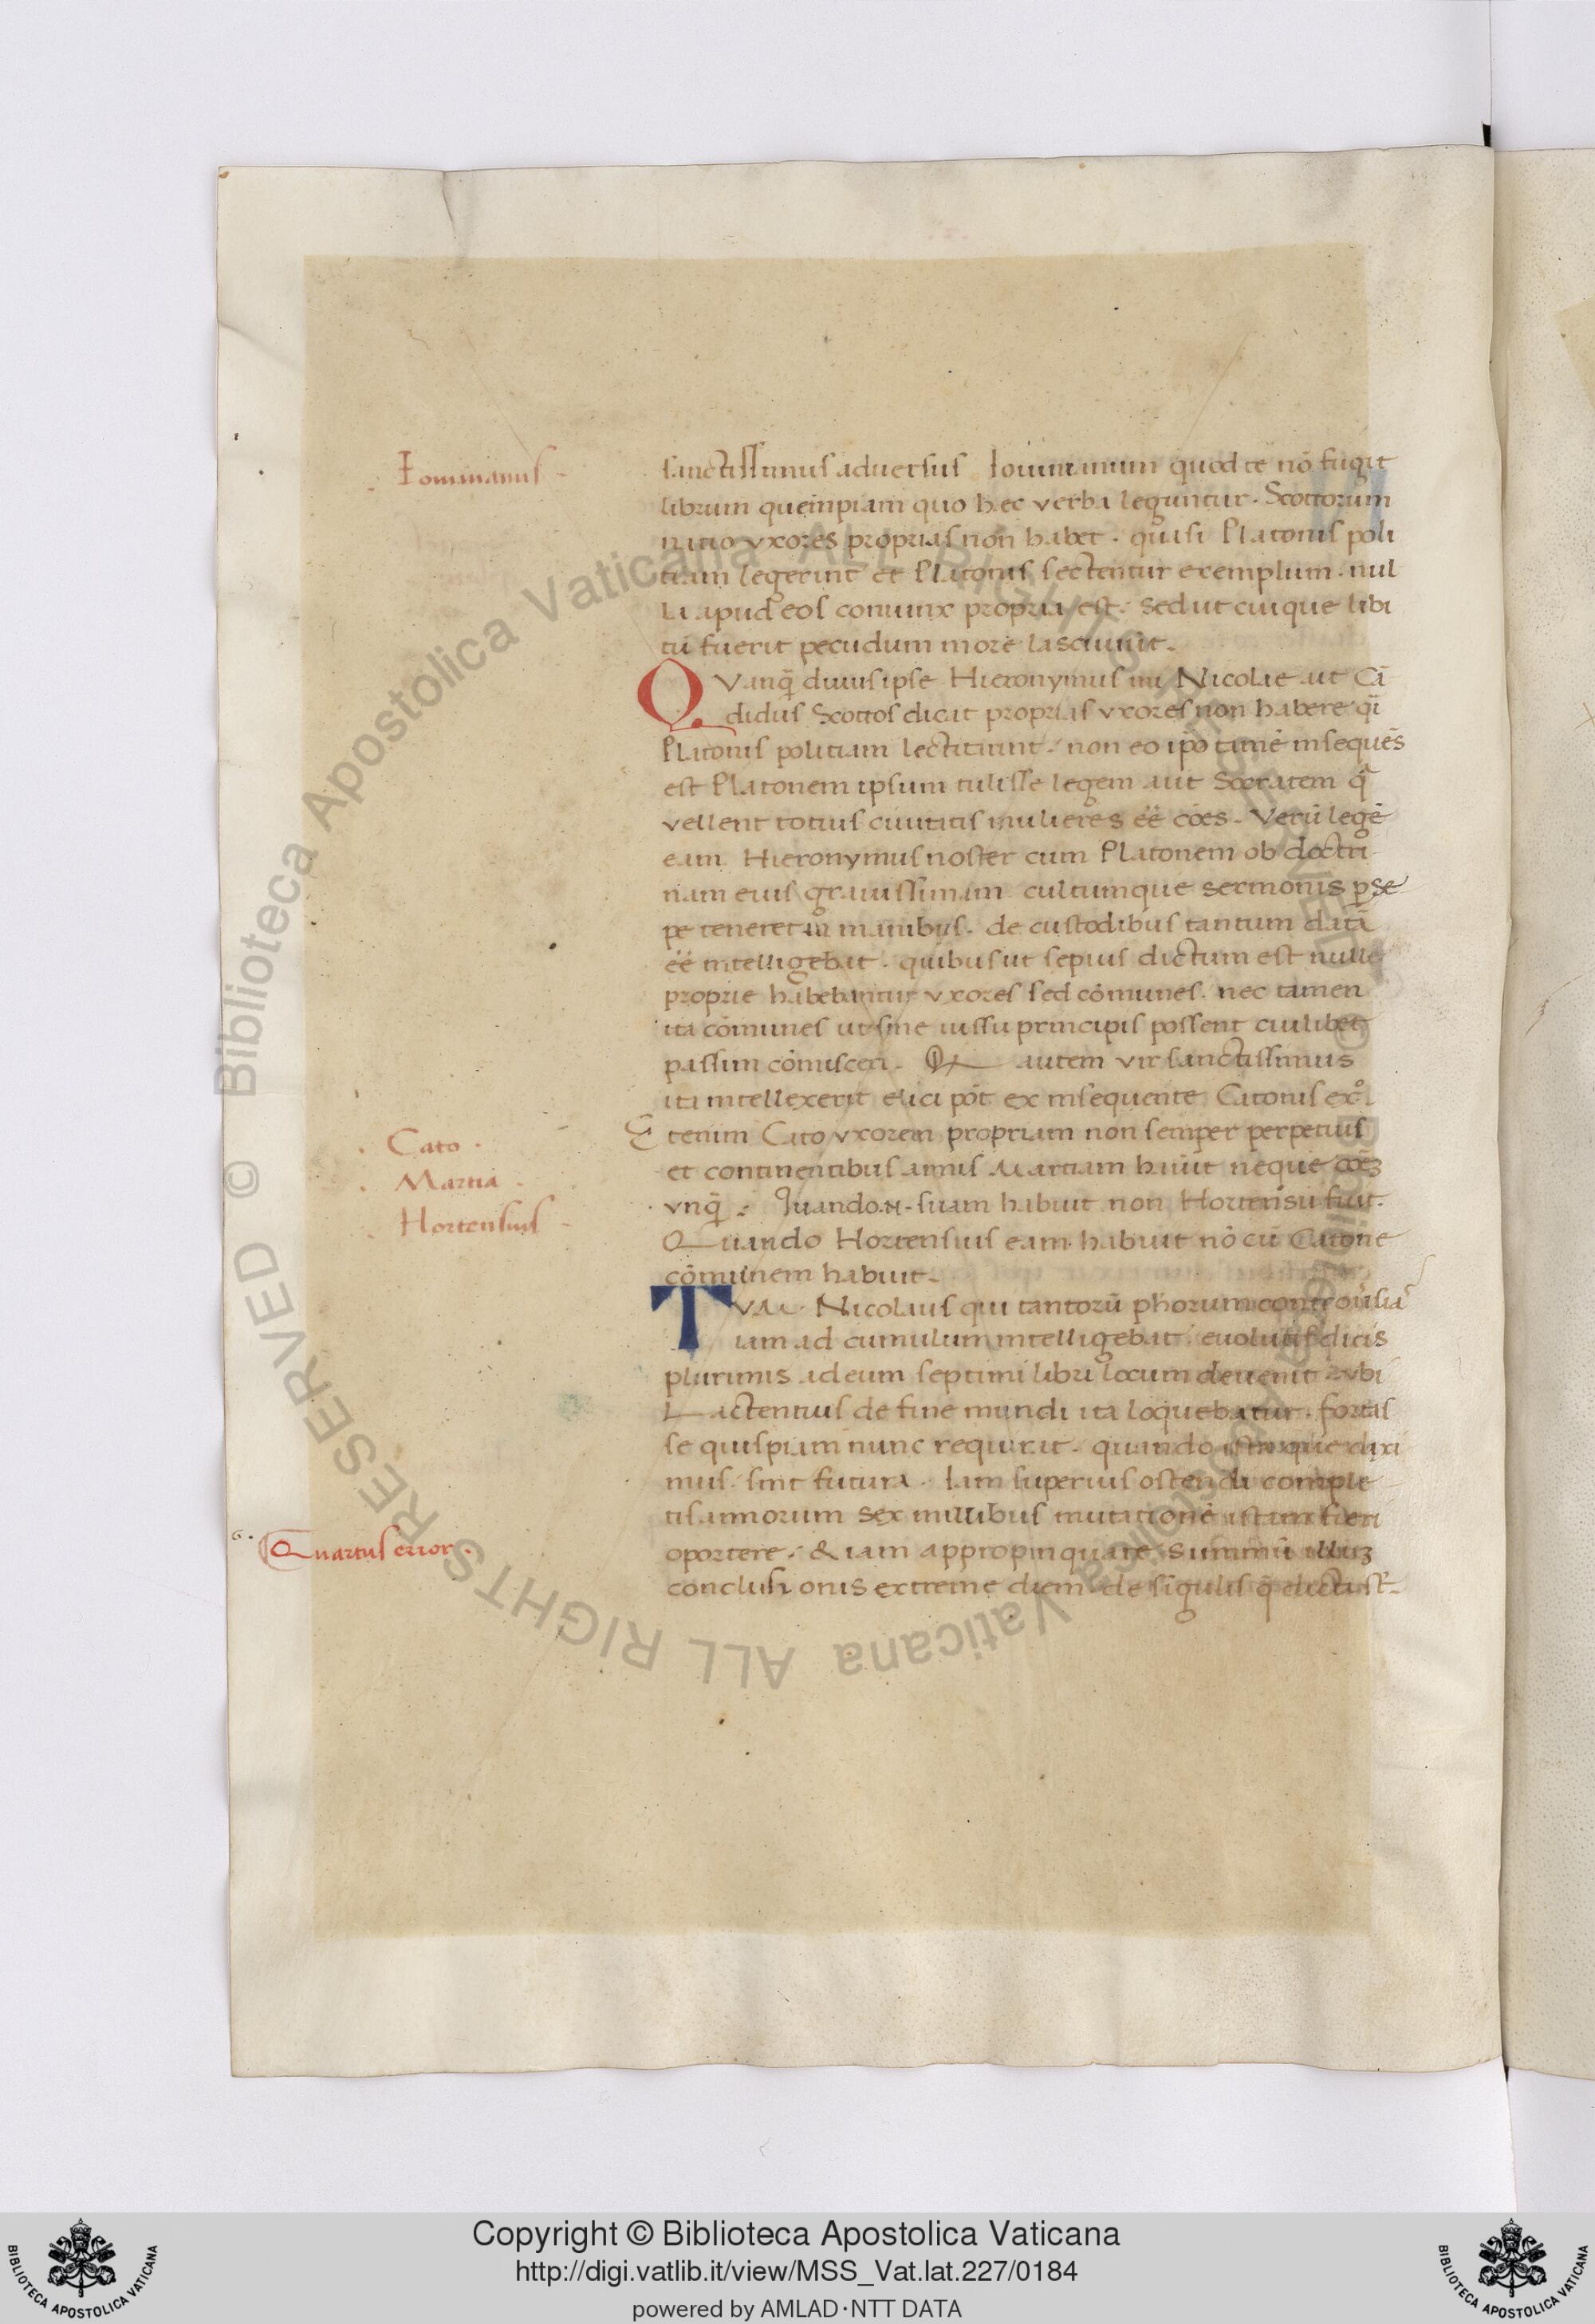 Iouinianus
sanctissimus aduersus Iouinianum quod te nō fugit
librum quempiam quo hec verba leguntur. Scottorum
natio vxores proprias non habet. quasi Platonis poli
tiam legerint et Platonis sectentur exemplum. nul
la apud eos coniunx propria est. sed ut cuique libi
tū fuerit pecudum more lasciuiunt.
QVanq̄ diuus ipse Hieronymus mi Nicolae aut Cā
didus Scottos dicat proprias vxores non habere q̄
Platonis politiam lectitarint. non eo ip̄o tamē insequēs
est Platonem ipsum tulisse legem aut Socratem q̄
vellent totius ciuitatis mulieres eē cōes. Verū legē
eam Hieronymus noster cum Platonem ob doctri
nam eius grauissimam cultumque sermonis p se
pe teneret in manibus. de custodibus tantum datā
eē intelligebat. quibus ut sepius dictum est nulle
proprie habebantur vxores sed cōmunes. nec tamen
ita cōmunes ut sine iussu principis possent cuilibet
passim cōmisceri. Q autem vir sanctissimus
ita intellexerit elici pōt ex insequente Catonis exº.
Etenim Cato vxorem propriam non semper perpetuis
et continentibus annis Martiam habuit neque cōēꝫ
vnq̄. Quando .n. suam habuit non Hortensii fuit.
Quando Hortensius eam habuit nō cū Catone
cōmunem habuit.
Cato.
Martia.
Hortensius
TVM Nicolaus qui tantorū phorum controūsiā
iam ad cumulum intelligebat. euolutis dictis
plurimis ad eum septimi libri locum deuenit vbi
Lactentius de fine mundi ita loquebatur. fortas
se quispiam nunc requirat. quando ista que dixi
mus sint futura. Iam superius ostendi comple
tis annorum sex millibus mutationē istam fieri
oportere. & iam appropinquare summū illuꝫ
conclusionis extreme diem. de sigulis q̄ dicta st̄.
6.
Quartus error.
Copyright © Biblioteca Apostolica Vaticana
http://digi.vatlib.it/view/MSS_Vat.lat.227/0184
powered by AMLAD·NTT DATA
BIBLIOTECA APOSTOLICA VATICANA
BIBLIOTECA APOSTOLICA VATICANA
© Biblioteca Apostolica Vaticana ALL RIGHTS RESERVED © Biblioteca Apostolica Vaticana ALL RIGHTS RESERVED